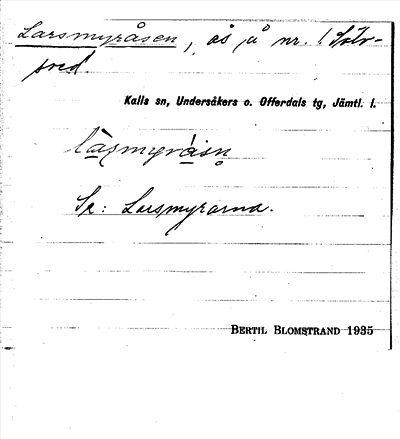 Larsmyråsen, ås å nr. 1 Sölv-
sved.
Kalls sn, Undersåkers o. Offerdals tg, Jämtl. l.
làsmyråsn̥
Se: Larsmyrarna.
BERTIL BLOMSTRAND 1935